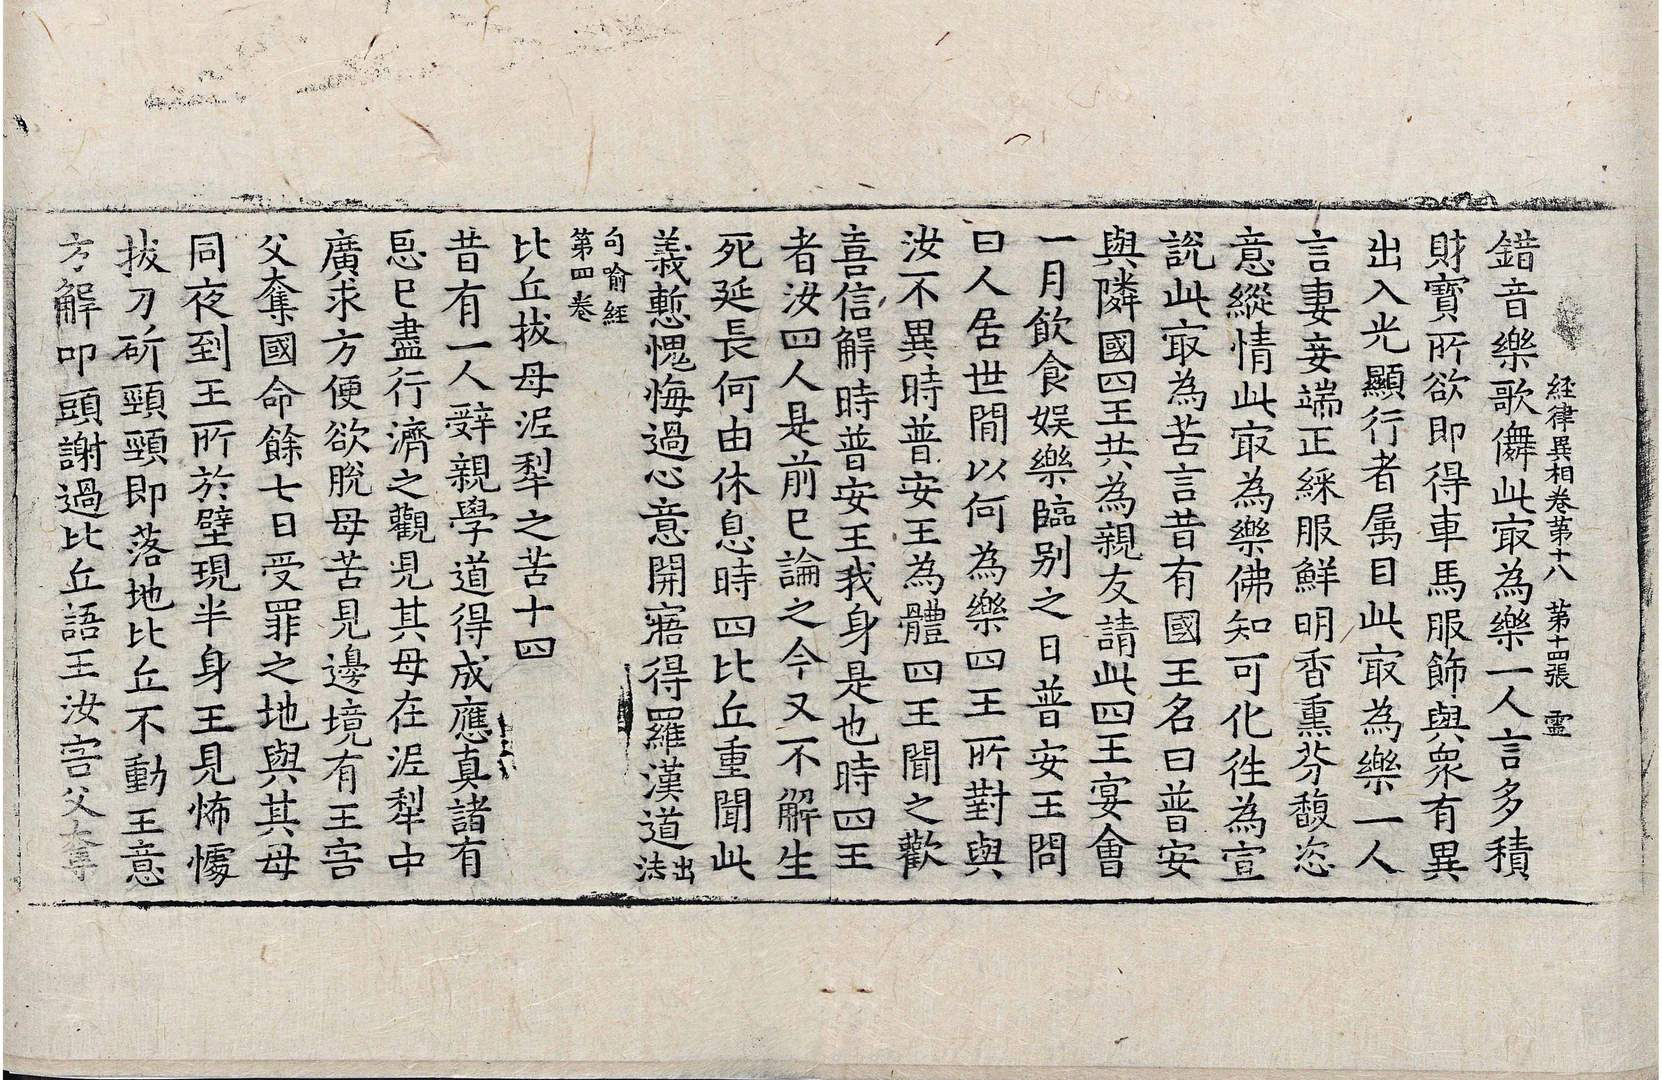 経律異相卷第十八 第十四張 霊
錯音樂歌儛此冣為樂一人言多積
財寶所欲即得車馬服飾與衆有異
出入光顯行者属目此冣為樂一人
言妻妾端正綵服鮮明香熏芬馥恣
意縱情此冣為樂佛知可化徃為宣
說此冣為苦言昔有國王名曰普安
與隣國四王共為親友請此四王宴會
一月飲食娛樂臨別之日普安王問
曰人居世閒以何為樂四王所對與
汝不異時普安王為體四王聞之歡
喜信解時普安王我身是也時四王
者汝四人是前已論之今又不解生
死延長何由休息時四比丘重聞此
義慙愧悔過心意開寤得羅漢道出法
句喻經第四卷
比丘拔母泥犁之苦十四
昔有一人辤親學道得成應真諸有
㤙已盡行濟之觀見其母在泥犁中
廣求方便欲脫母苦見邊境有王害
父奪國命餘七日受罪之地與其母
同夜到王所於壁現半身王見怖懅
拔刀斫頸頸即落地比丘不動王意
方解叩頭謝過比丘語王汝害父奪